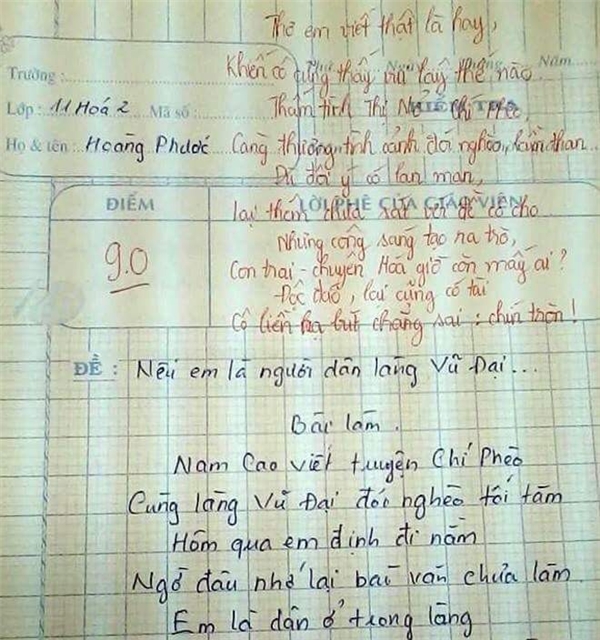 Thơ em viết thật là hay,
Khiến cô cũng thấy vui lây thế nào.
Năm
Trường :
Thấm tình Thị Nở - Chí Phèo,
Lớp : 11 Hoá 2 Mã số :
Họ & tên : Hoàng Phước
Càng thương tình cảnh đói nghèo, lầm than...
Dù đôi ý có lan man,
ĐIỂM
LỜI PHÊ CỦA GIÁO VIÊN
lại thêm chưa sát với đề cô cho
Nhưng công sáng tạo ra trò,
9.0
Con trai - chuyên Hóa giờ còn mấy ai ?
Độc đáo, lại cũng có tài
Cô liền hạ bút chẳng sai : chín tròn !
ĐỀ : Nếu em là người dân làng Vũ Đại...
Bài làm.
Nam Cao viết truyện Chí Phèo
Cũng làng Vũ Đại đói nghèo tối tăm
Hôm qua em định đi nằm
Ngờ đâu nhớ lại bài văn chưa làm
Em là dân ở trong làng